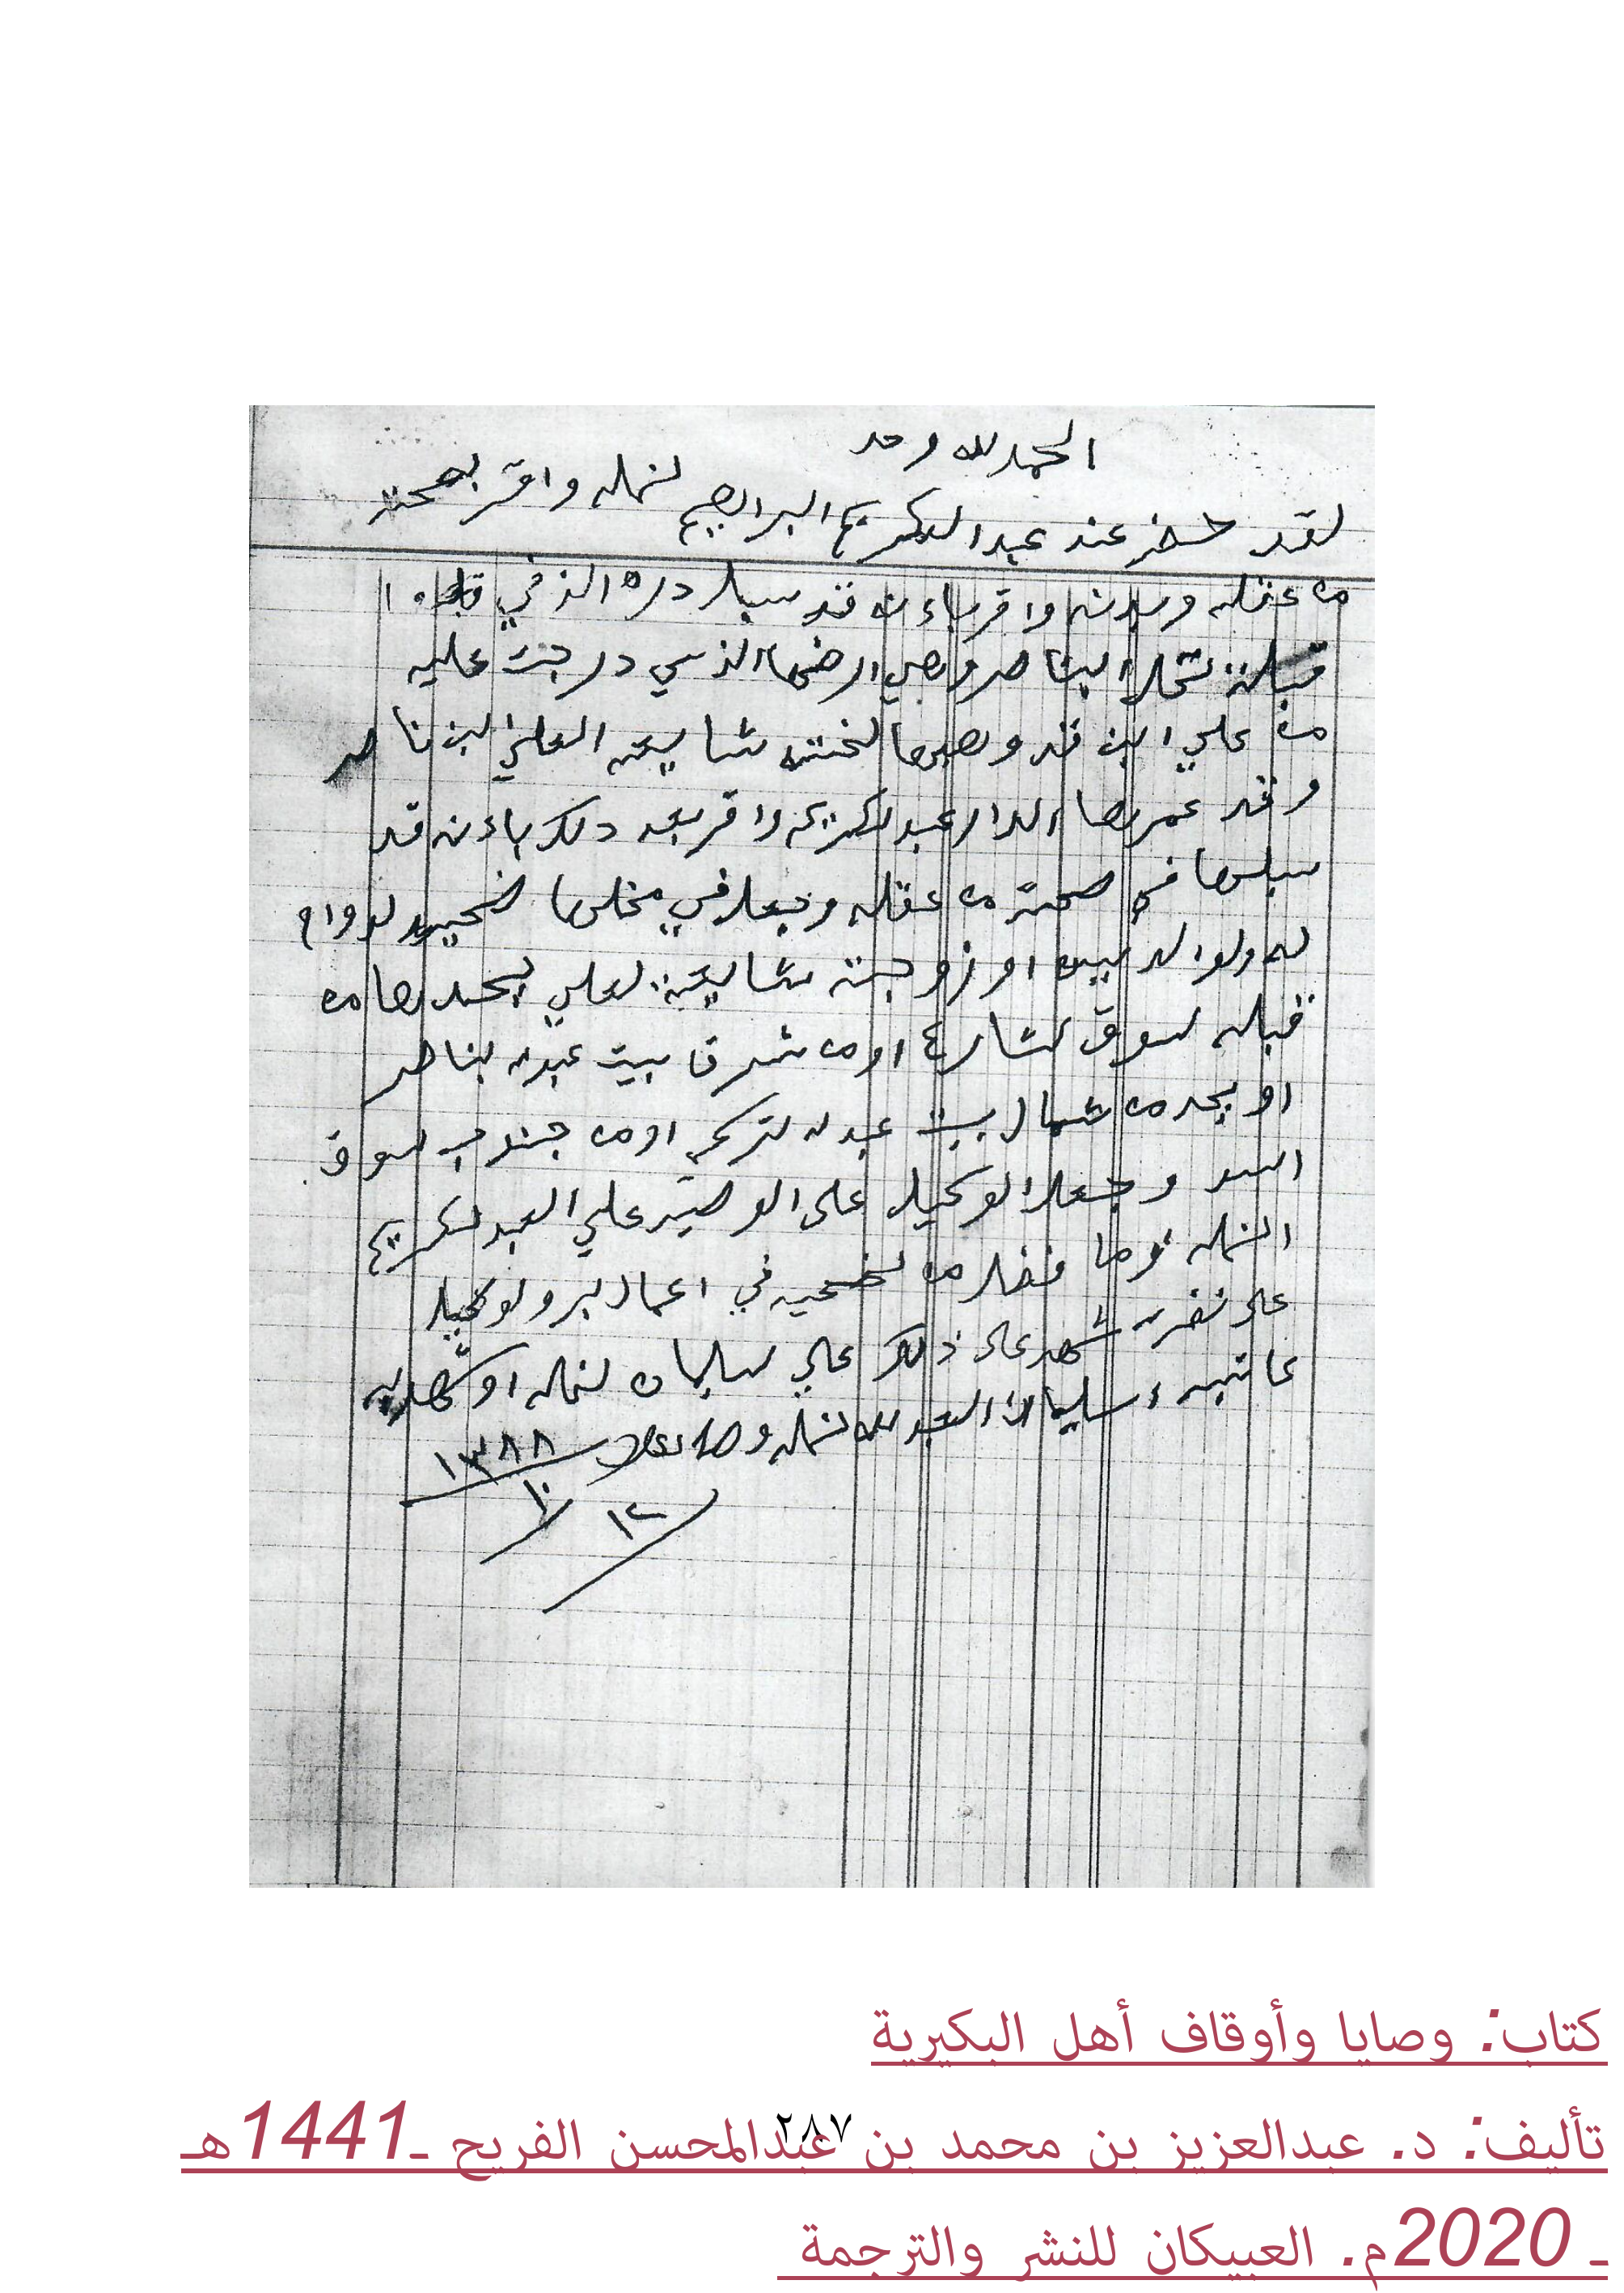 الحمد لله وحد
لقد حضر عند عبد الكريم البراهيم لنمله واقر بصحته
من عقله وبدنه واقر باءنه قد سبل دره الذي في
قبلة نخل البناصر وهي ارضها الذي درجت عليه
من علي ابن قد وهبها لخته شايعه العلي لبن ناصر
وقد عمرها الدار عبد لكريم واقر بعد ذلك باءنه قد
سبلها في صحته من عقله وجعل في مخلها ضحيه لدوام
له ولوالديه او زوجته شايعة لعلي يحدها من
قبله لسوق لشارع اومن شرق بيت عبدله لناصر
او يحد من شمال بيت عبدله لتركي اومن جنوب لسوق
السد وجعل الوكيل على الوصيه علي العبد لكريم
النمله وما فضل من لضحيه في اعمال لبر ولوكيل
على نضره شهد على ذلك علي لسليمان لنمله اوشهد به
كاتبه اسليمان العبد لله لنمله وصلى الله
١٣٨٨
١٠
١٢
كتاب: وصايا وأوقاف أهل البكيرية
٢٨٧
تأليف: د. عبدالعزيز بن محمد بن عبدالمحسن الفريح ـ1441هـ
ـ 2020م. العبيكان للنشر والترجمة